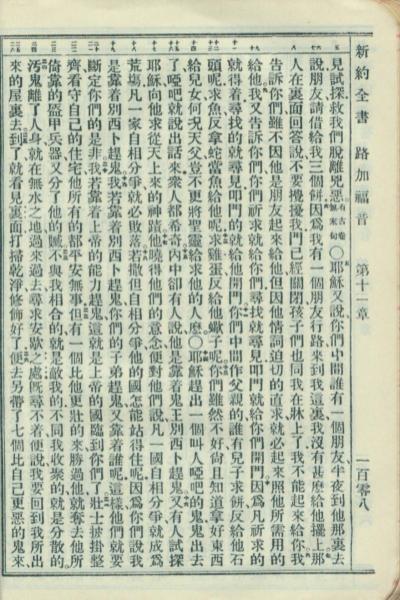 新約全書 路加福音 第十一章 一百零八
見試探救我們脫離兇惡 古卷無末句 ○耶穌又說你們中間誰有一個朋友半夜到他那裏去
說朋友請借給我三個餅因爲我有一個朋友行路來到我這裏我沒有甚麽給他擺上那
人在裏面回答說不要攪擾我門已經關閉孩子們也同我在牀上了我不能起來給你我
告訴你們雖不因他是朋友起來給他但因他情詞迫切的直求就必起來照他所需用的
給他我又告訴你們你們祈求就給你們尋找就尋見叩門就給你們開門因爲凡祈求的
就得着尋找的就尋見叩門的就給他開門你們中間作父親的誰有兒子求餅反給他石
頭呢求魚反拿蛇當魚給他呢求雞蛋反給他蠍子呢你們雖然不好尚且知道拿好東西
給兒女何況天父豈不更將聖靈給求他的人麽○耶穌趕出一個叫人啞吧的鬼鬼出去
了啞吧就說出話來衆人都希奇內中卻有人說他是靠着鬼王別西卜趕鬼又有人試探
耶穌向他求從天上來的神蹟他曉得他們的意念便對他們說凡一國自相分爭就成爲
荒塲凡一家自相分爭就必敗落若撒但自相分爭他的國怎能站得住呢因爲你們說我
是靠着別西卜趕鬼我若靠着別西卜趕鬼你們的子弟趕鬼又靠着誰呢這樣他們就要
斷定你們的是非我若靠着上帝的能力趕鬼這就是上帝的國臨到你們了壯士披掛整
齊看守自己的住宅他所有的都平安無事但有一個比他更壯的來勝過他就奪去他所
倚靠的盔甲兵器又分了他的贓不與我相合的就是敵我的不同我收聚的就是分散的
汚鬼離了人身就在無水之地過來過去尋求安歇之處旣尋不着便說我要回到我所出
來的屋裏去到了就看見裏面打掃乾淨修飾好了便去另帶了七個比自己更惡的鬼來